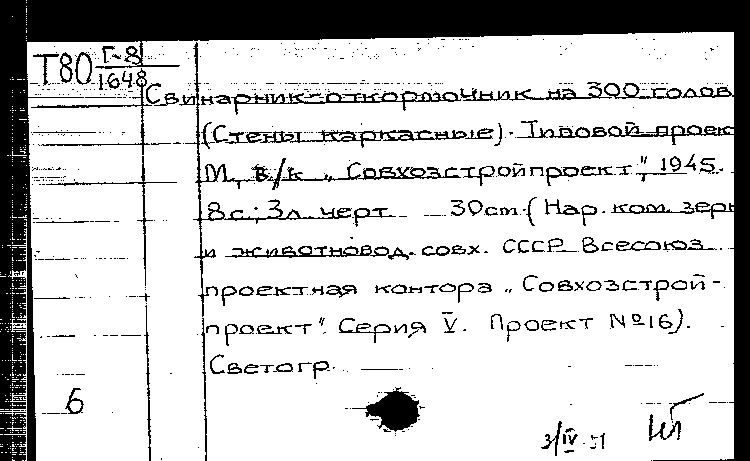 Т80 Г-8
1648
Свинарник-откормочник на 300 голов
(Стены каркасные). Типовой проек
М, в/к „Совхозстройпроект", 1945.
8с; 3л. черт 30см (Нар. ком. зерн
и животновод. совх. СССР Всесоюз
проектная контора „Совхозстрой-
проект". Серия V. Проект №16).
Светогр.
6
3/IV-51